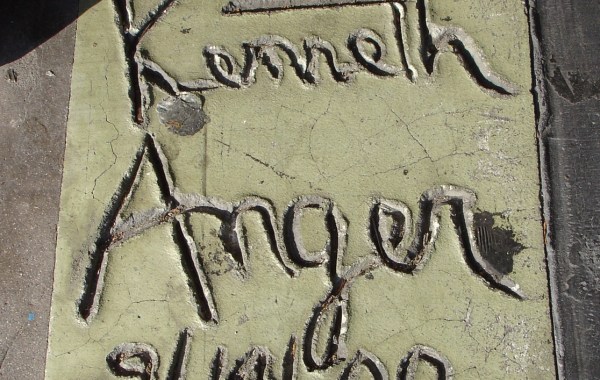 Kenneth
Anger